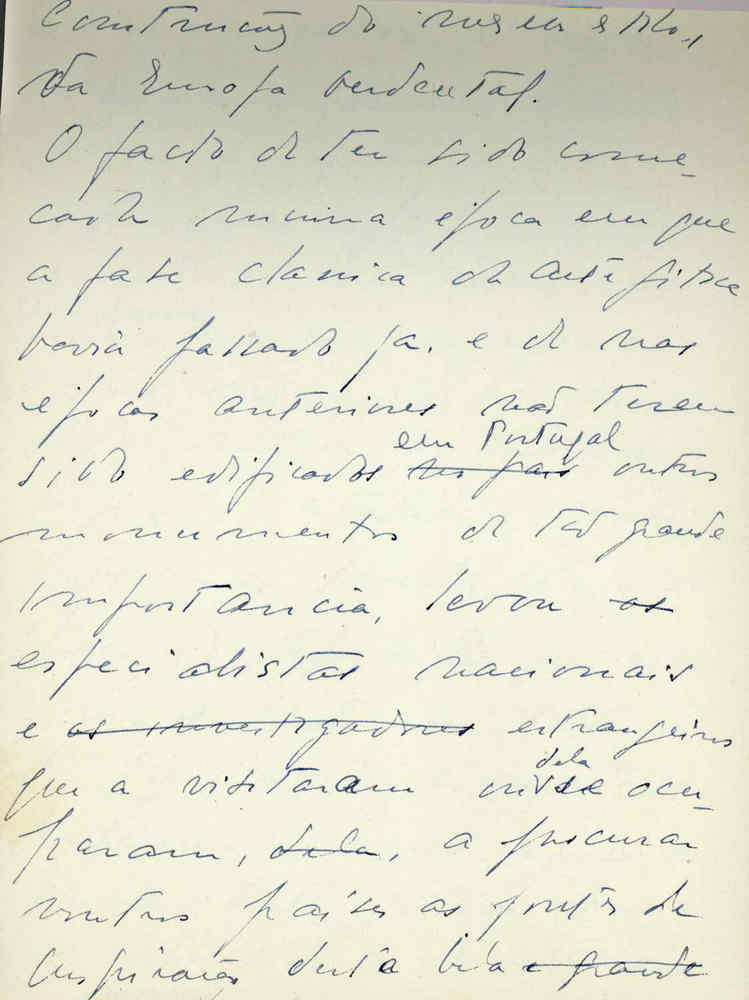 construção do mesmo estilo,
da Europa Ocidental.
O facto de ter sido come-
çada numa época em que
a fase classica da arte gótica
havia passado já, e de nas
epocas anteriores não terem
sido edificados em Portugal no pais outros
monumentos de tão grande
importancia, levou os
especialistas nacionais
e os investigadores estrangeiros
que a visitaram dela ocu-
param, dela, a procurar
noutros países as fontes de
inspiração desta bela e grande